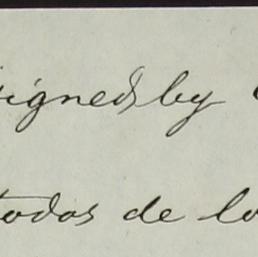 signed by
todos de lo